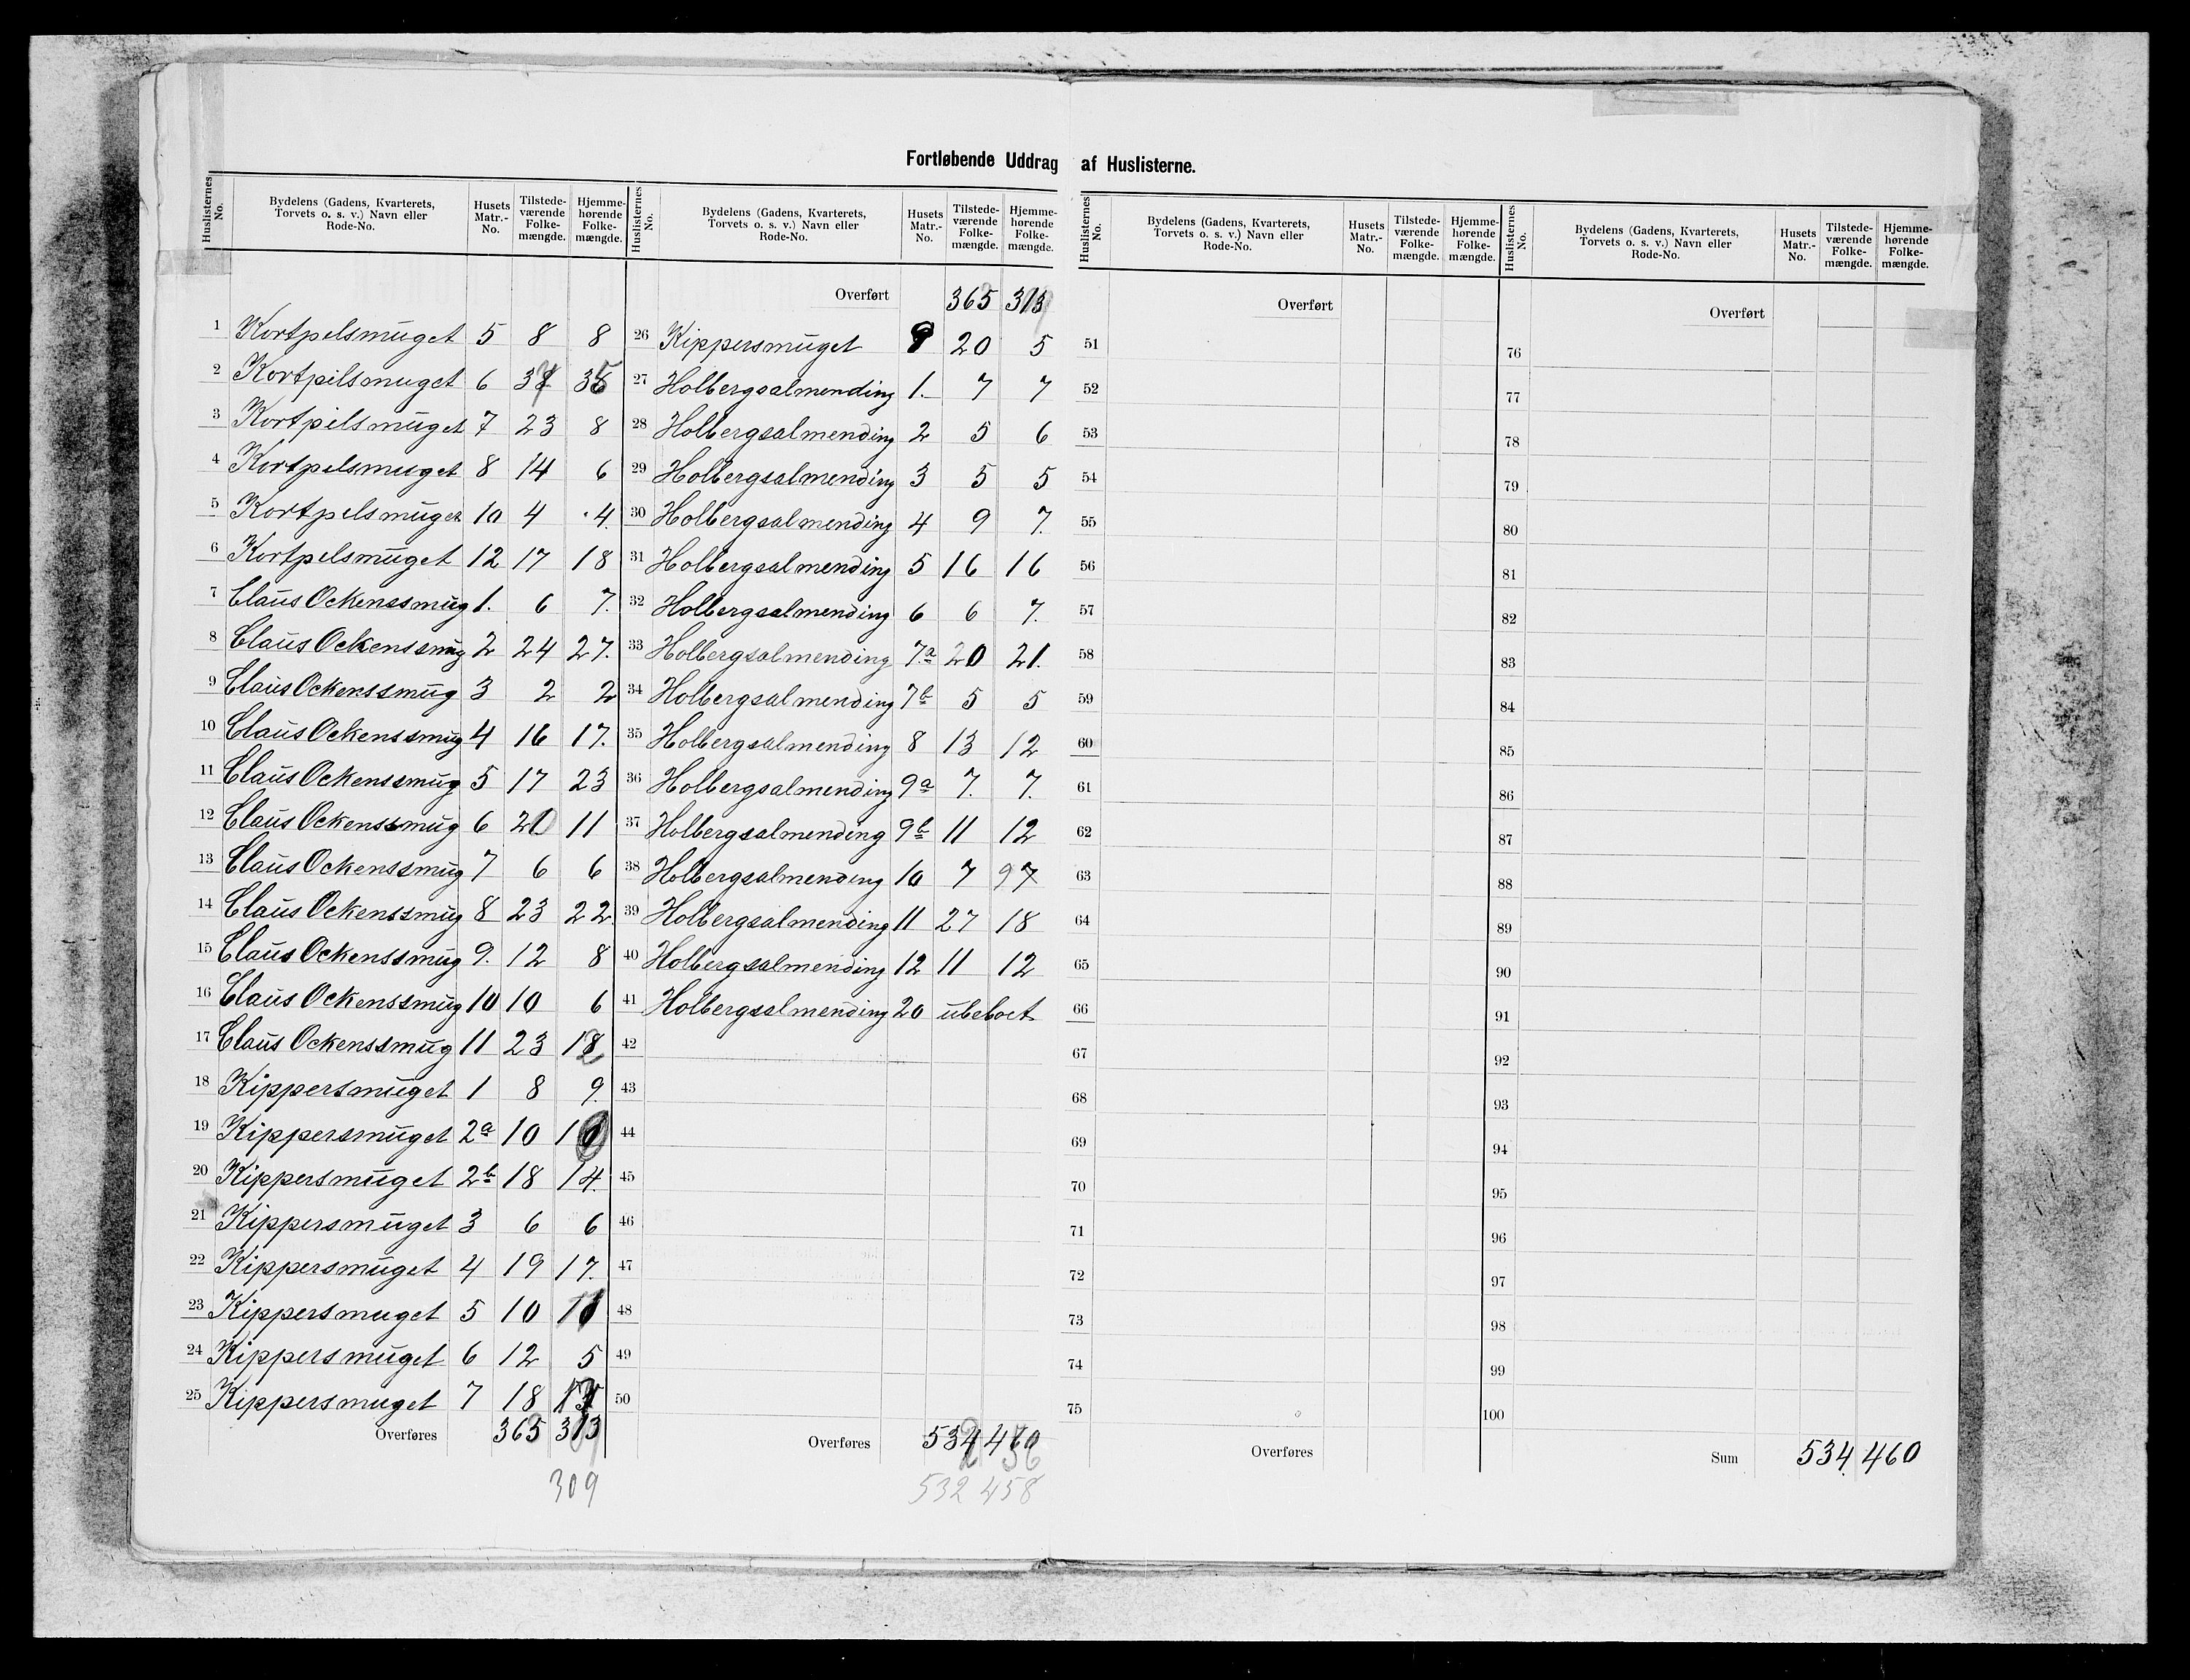 Fortløbende Uddrag af Huslisterne.
Huslisternes No. | Bydelens (Gadens, Kvarterets, Torvets o. s. v.) Navn eller Rode-No. | Husets Matr.-No. | Tilstedeværende Folkemængde. | Hjemmehørende Folkemængde.
1 Kortpelsmuget 5 8 8
2 Kortpilsmuget 6
3 Kortpilsmuget 7 23 8
4 Kortpelsmuget 8 14 6
5 Kortpelsmuget 10 4 4
6 Kortpelsmuget 12 17 18
7 Claus Ockenssmug 1. 6 7.
8 Claus Ockenssmug 2 24 27.
9 Claus Ockenssmug 3 2 2
10 Claus Ockenssmug 4 16 17.
11 Claus Ockenssmug 5 17 23
12 Claus Ockenssmug 6 20 11
13 Claus Ockenssmug 7 6 6
14 Claus Ockenssmug 8 23 22.
15 Claus Ockenssmug 9. 12 8
16 Claus Ockenssmug 10 10 6
17 Claus Ockenssmug 11 23
18 Kippersmuget 1 8 9.
19 Kippersmuget 2a 10 10
20 Kippersmuget 2b 18 14.
21 Kippersmuget 3 6 6
22 Kippersmuget 4 19 17.
23 Kippersmuget 5 10
24 Kippersmuget 6 12 5
25 Kippersmuget 7 18
Overføres 365 313
309
Huslisternes No. | Bydelens (Gadens, Kvarterets, Torvets o. s. v.) Navn eller Rode-No. | Husets Matr.-No. | Tilstedeværende Folkemængde. | Hjemmehørende Folkemængde.
Overført 365 313
26 Kippersmuget 9 20 5
27 Holbergsalmending 1. 7 7
28 Holbergsalmending 2 5 6
29 Holbergsalmending 3 5 5
30 Holbergsalmending 4 9 7.
31 Holbergsalmending 5 16 16
32 Holbergsalmending 6 6 7.
33 Holbergsalmending 7.a 20 21.
34 Holbergsalmending 7b 5 5
35 Holbergsalmending 8 13 12
36 Holbergsalmending 9a 7. 7.
37 Holbergsalmending 9b 11 12
38 Holbergsalmending 10 7 9 7
39 Holbergsalmending 11 27 18
40 Holbergsalmending 12 11 12
41 Holbergsalmending 20 ubeboet
42
43
44
45
46
47
48
49
50
Overføres 534 460
532 458
Huslisternes No. | Bydelens (Gadens, Kvarterets, Torvets o. s. v.) Navn eller Rode-No. | Husets Matr.-No. | Tilstedeværende Folkemængde. | Hjemmehørende Folkemængde.
Overført
51
52
53
54
55
56
57
58
59
60
61
62
63
64
65
66
67
68
69
70
71
72
73
74
75
Overføres
Huslisternes No. | Bydelens (Gadens, Kvarterets, Torvets o. s. v.) Navn eller Rode-No. | Husets Matr.-No. | Tilstedeværende Folkemængde. | Hjemmehørende Folkemængde.
Overført
76
77
78
79
80
81
82
83
84
85
86
87
88
89
90
91
92
93
94
95
96
97
98
99
100
Sum 534. 460